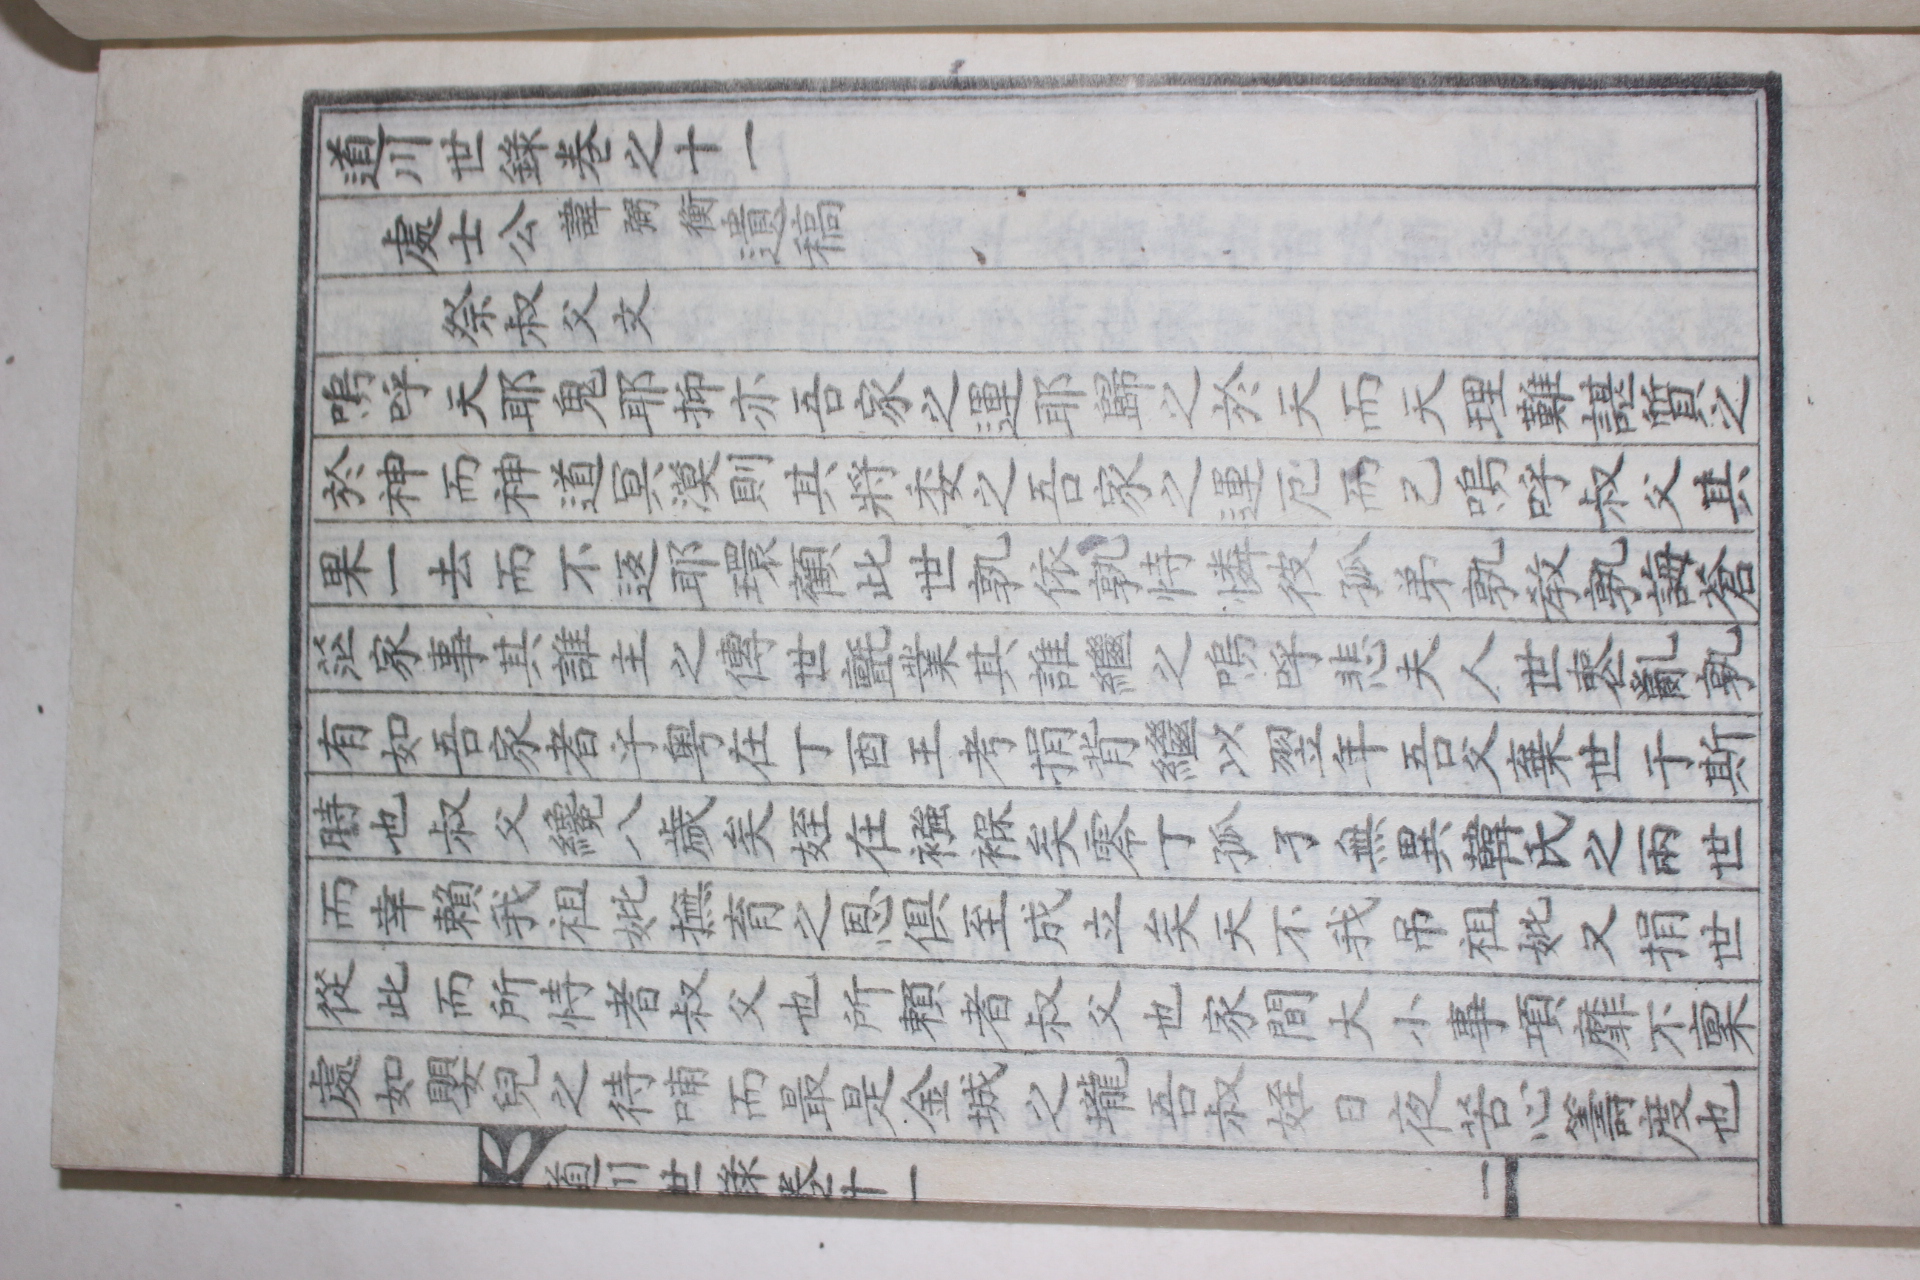 道川世錄卷之十一
處士公諱弼衡遺稿
祭叔父文
嗚呼天耶鬼耶抑亦吾家之運耶歸之於天而天理難諶質之
於神而神道冥漠則其將委之吾家之運厄而已嗚呼叔父其
果一去而不返耶環顧此世孰依孰恃憐彼孤弟孰敎孰誨蒼
茫家事其誰主之傳世氈業其誰繼之嗚呼悲夫人世喪亂孰
有如吾家者乎粤在丁酉王考捐背繼以翌年吾父棄世于斯
時也叔父纔八歲矣姪在襁褓矣零丁孤孑無異韓氏之兩世
而幸賴我祖妣撫育之恩俱至成立矣天不我吊祖妣又捐世
從此而所恃者叔父也所賴者叔父也家間大小事項靡不稟
處如嬰兒之待哺而最是金城之壠吾叔姪日夜苦心籌度也
道川世錄卷之十一
二